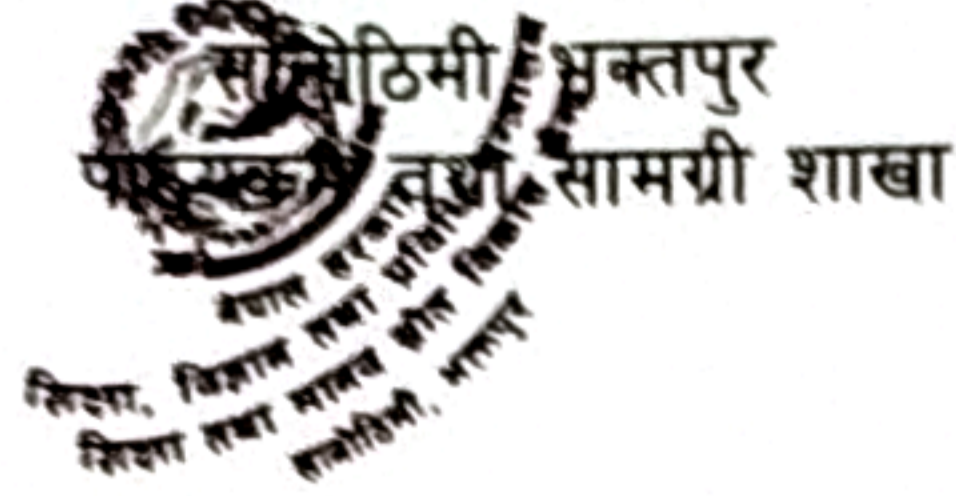 सानोठिमी भक्तपुर
पाठ्यक्रम तथा सामग्री शाखा
नेपाल सरकार
शिक्षा, विज्ञान तथा प्रविधि
शिक्षा तथा मानव स्रोत विकास
सानोठिमी, भक्तपुर